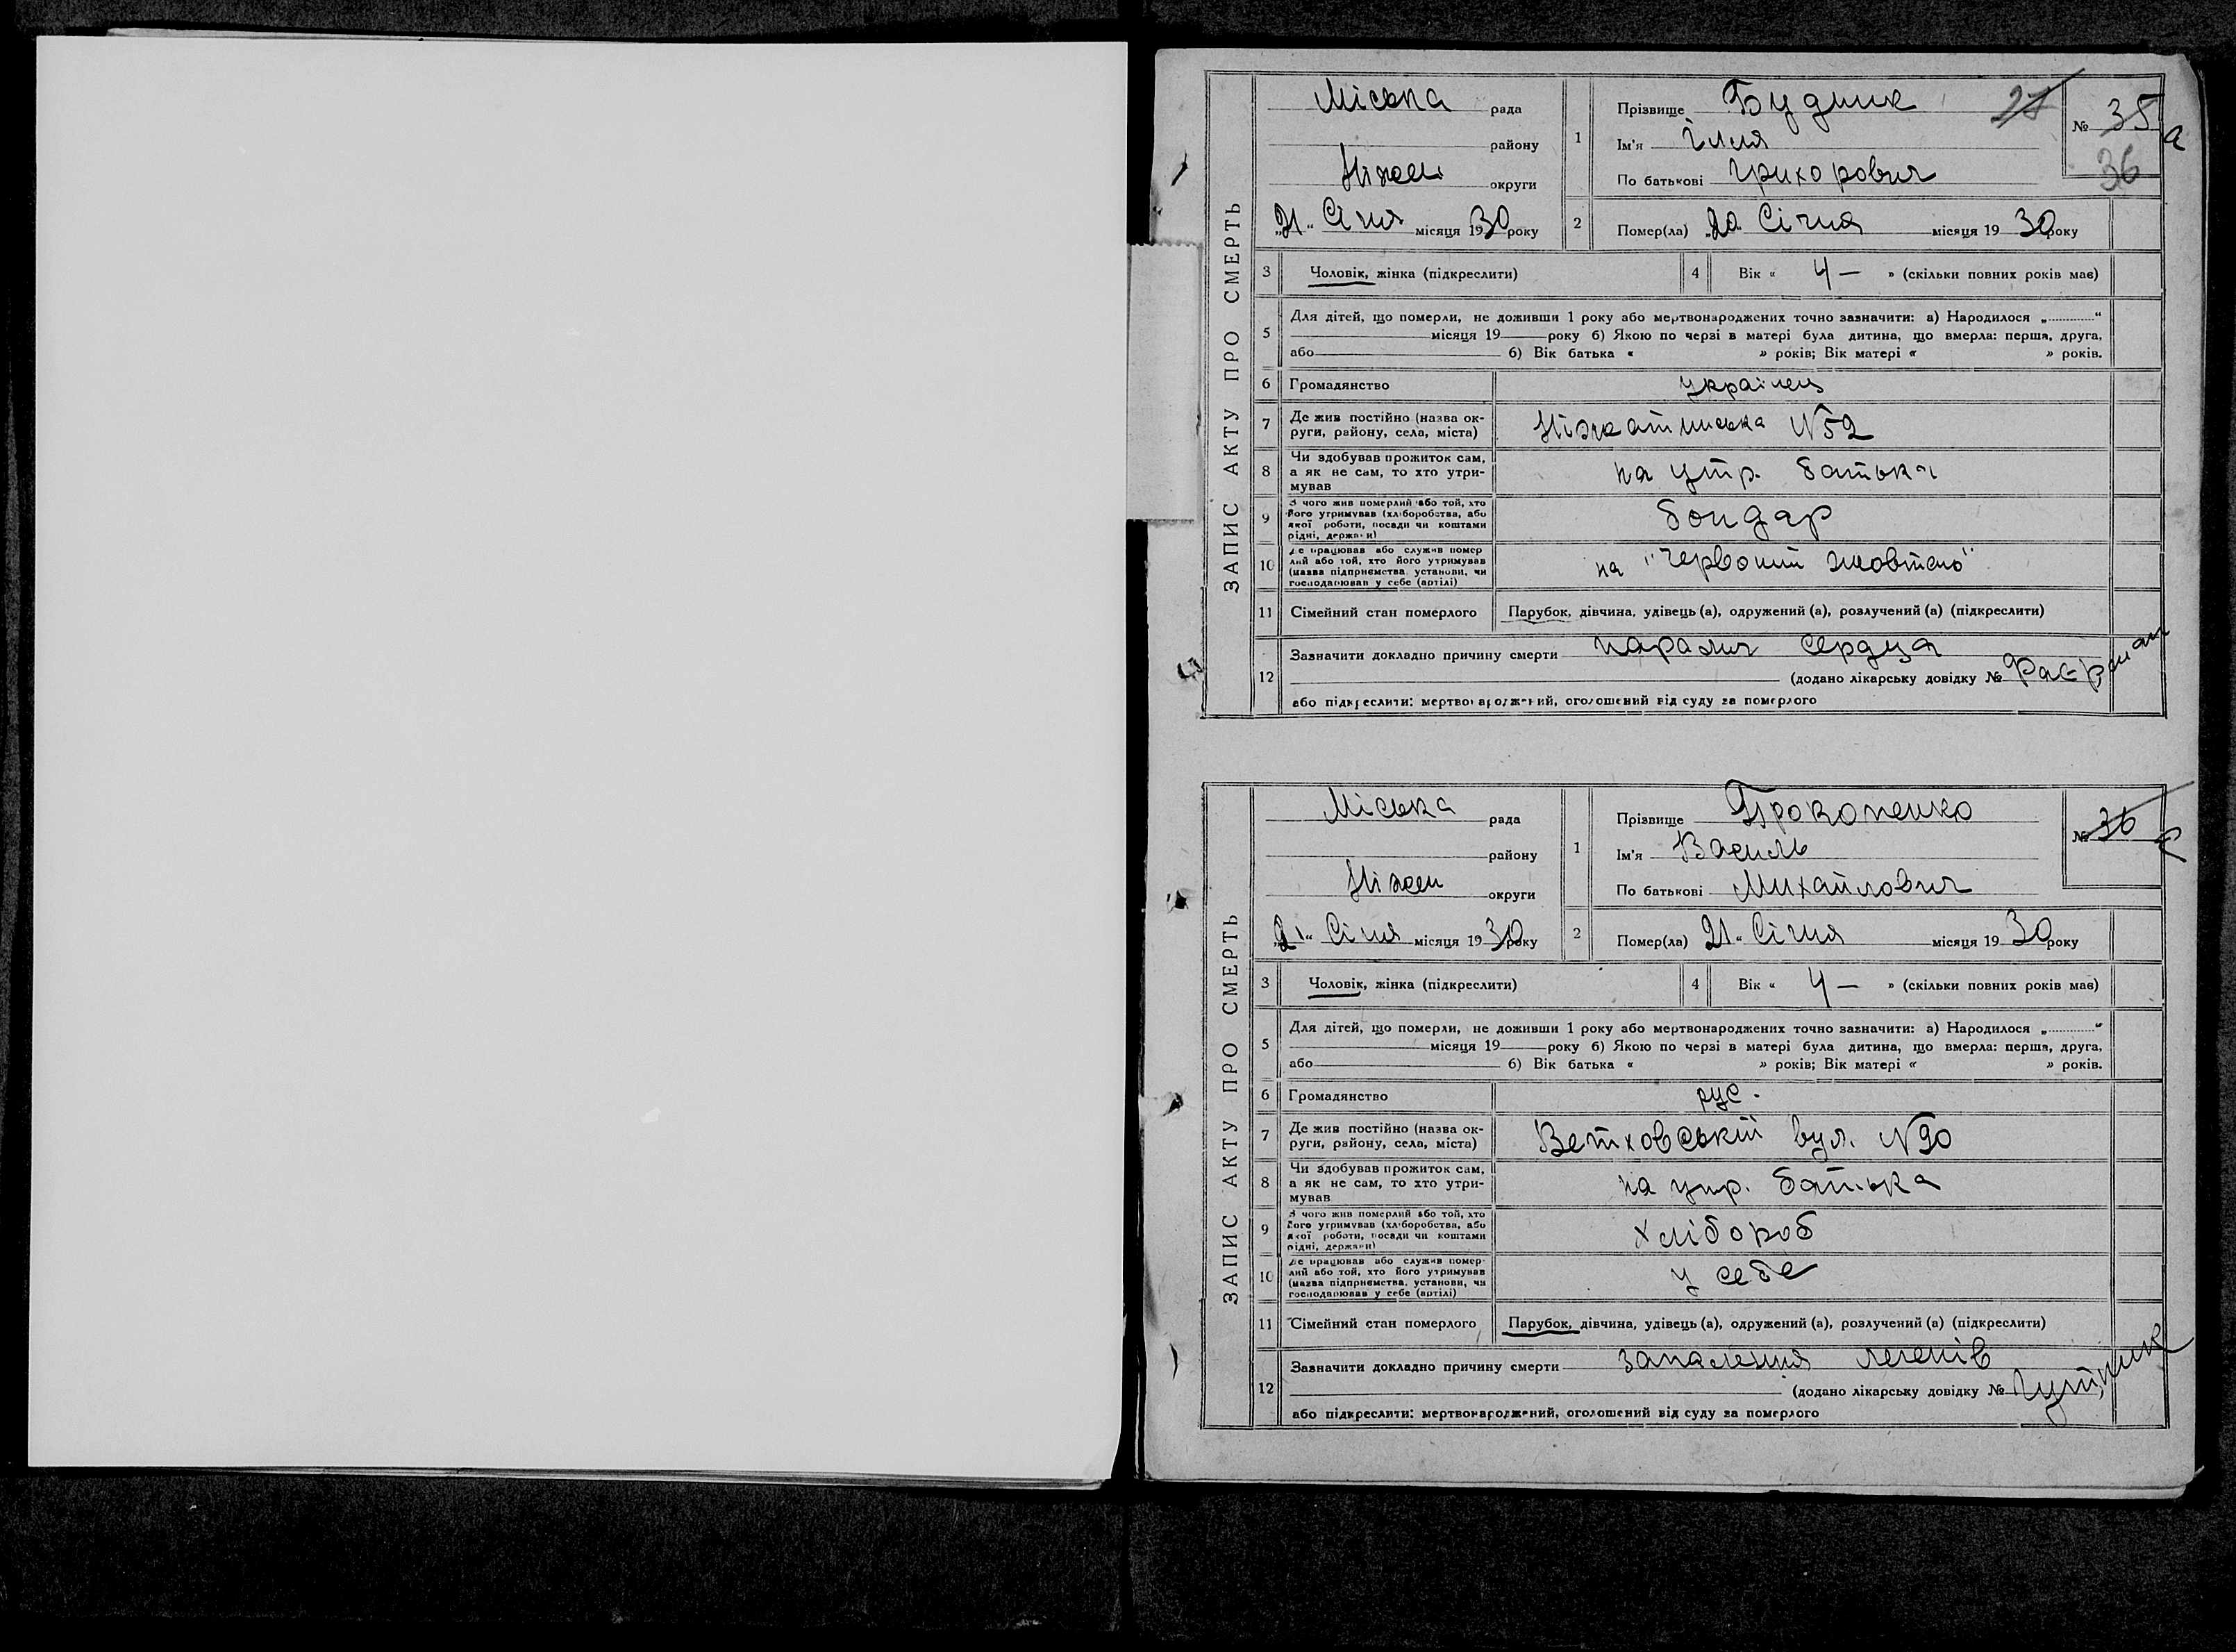 ЗАПИС АКТУ ПРО СМЕРТЬ
Міська рада
району
Ніжен округи
„21“ Січня місяця 1930 року
1 Прізвище Будник
Ім'я Ілля
По батькові Григорович
21
№ 35 а
36
2 Помер(ла) „20 Січня місяця 1930 року
3 Чоловік, жінка (підкреслити)
4 Вік « 4 — » (скільки повних років мав)
5 Для дітей, що померли, не доживши 1 року або мертвонароджених точно зазначити: а) Народилося „ “
місяця 19 року б) Якою по черзі в матері була дитина, що вмерла: перша, друга,
або б) Вік батька « » років; Вік матері « » років.
6 Громадянство українець
7 Де жив постійно (назва ок-
руги, району, села, міста) №52
8 Чи здобував прожиток сам,
а як не сам, то хто утри-
мував на утр. батька
9 З чого жив померлий або той, хто
його утримував (хліборобства, або
якої роботи, посади чи коштами
рідні, держави) бондар
10 Де працював або служив помер
лий або той, хто його утримував
(назва підприємства, установи, чи
господарював у себе (артілі) на "Червоний жовтень"
11 Сімейний стан померлого Парубок, дівчина, удівець (а), одружений (а), розлучений (а) (підкреслити)
12 Зазначити докладно причину смерти параліч сердця
(додано лікарську довідку №
або підкреслити: мертвонароджений, оголошений від суду за померлого
ЗАПИС АКТУ ПРО СМЕРТЬ
Міська рада
району
Ніжен округи
„21“ Січня місяця 1930 року
1 Прізвище Прокопенко
Ім'я Василь
По батькові Михайлович
№ 36
2 Помер(ла) 21“ Січня місяця 1930 року
3 Чоловік, жінка (підкреслити)
4 Вік « 4 — » (скільки повних років мав)
5 Для дітей, що померли, не доживши 1 року або мертвонароджених точно зазначити: а) Народилося „ “
місяця 19 року б) Якою по черзі в матері була дитина, що вмерла: перша, друга,
або б) Вік батька « » років; Вік матері « » років.
6 Громадянство рус.
7 Де жив постійно (назва ок-
руги, району, села, міста) Ветховській вул. №90
8 Чи здобував прожиток сам,
а як не сам, то хто утри-
мував на утр. батька
9 З чого жив померлий або той, хто
його утримував (хліборобства, або
якої роботи, посади чи коштами
рідні, держави) хлібороб
10 Де працював або служив помер-
лий або той, хто його утримував
(назва підприємства, установи, чи
господарював у себе (артілі) у себе
11 Сімейний стан померлого Парубок, дівчина, удівець (а), одружений (а), розлучений (а) (підкреслити)
12 Зазначити докладно причину смерти запалення легенів
(додано лікарську довідку №
або підкреслити: мертвонароджений, оголошений від суду за померлого